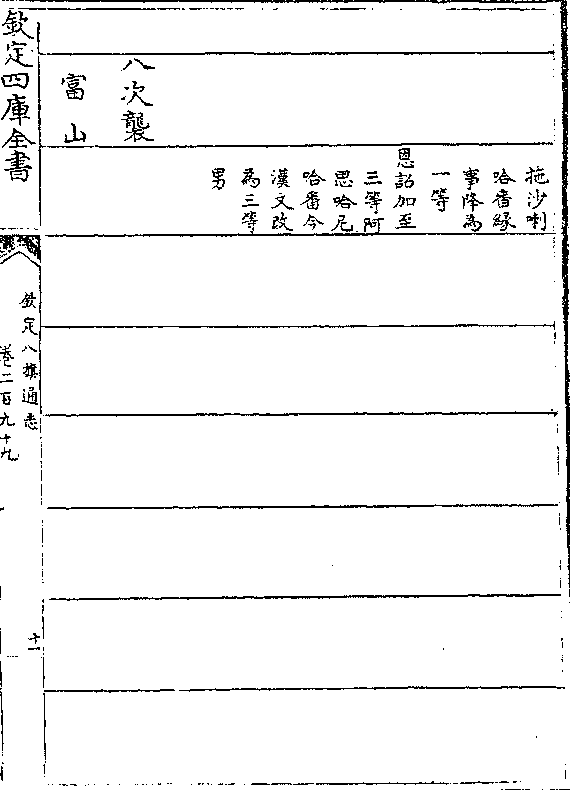 拖沙喇
哈番縁
事降為
一等
恩詔加至
三等阿
思哈尼
哈番今
漢文改
為三等
男
八次襲
富山
欽定四庫全書
欽定八旗通志
卷二百九十九
十一